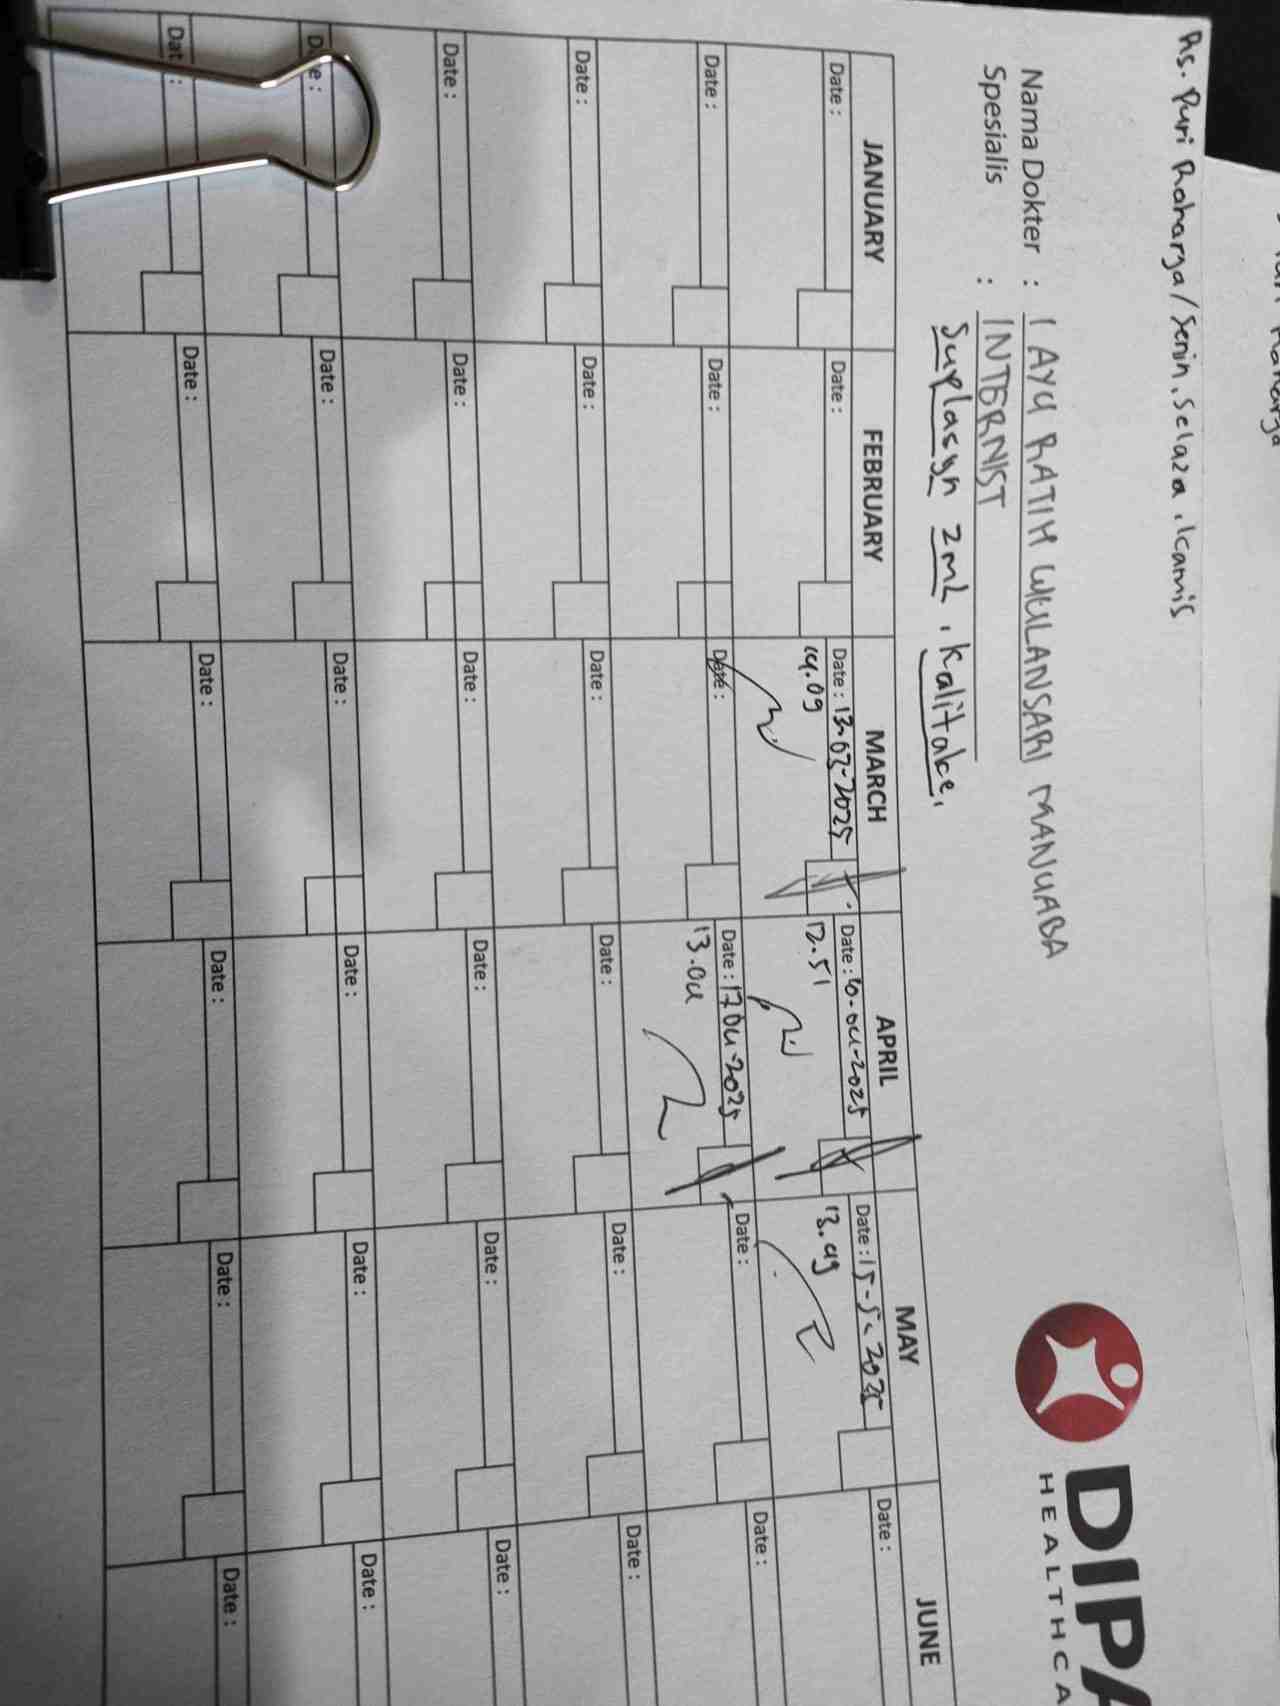 Rs. Puri Raharja/Senin, Selasa, kamis
DIPA
HEALTHCA
Nama Dokter : I AYU RATIH WULANSARI MANUABA
Spesialis : INTERNIST
Suplasyn 2mL, Kalitake,
JANUARY FEBRUARY MARCH APRIL MAY JUNE
Date : Date : Date : 13-03-2025 Date : 10-04-2025 Date : 15-5-2025 Date :
14.09 12.51 13.49
Date : Date : Date : Date : 17 04-2025 Date : Date :
13.04
Date : Date : Date : Date : Date : Date :
Date : Date : Date : Date : Date : Date :
Date : Date : Date : Date : Date : Date :
Date : Date : Date : Date : Date : Date :